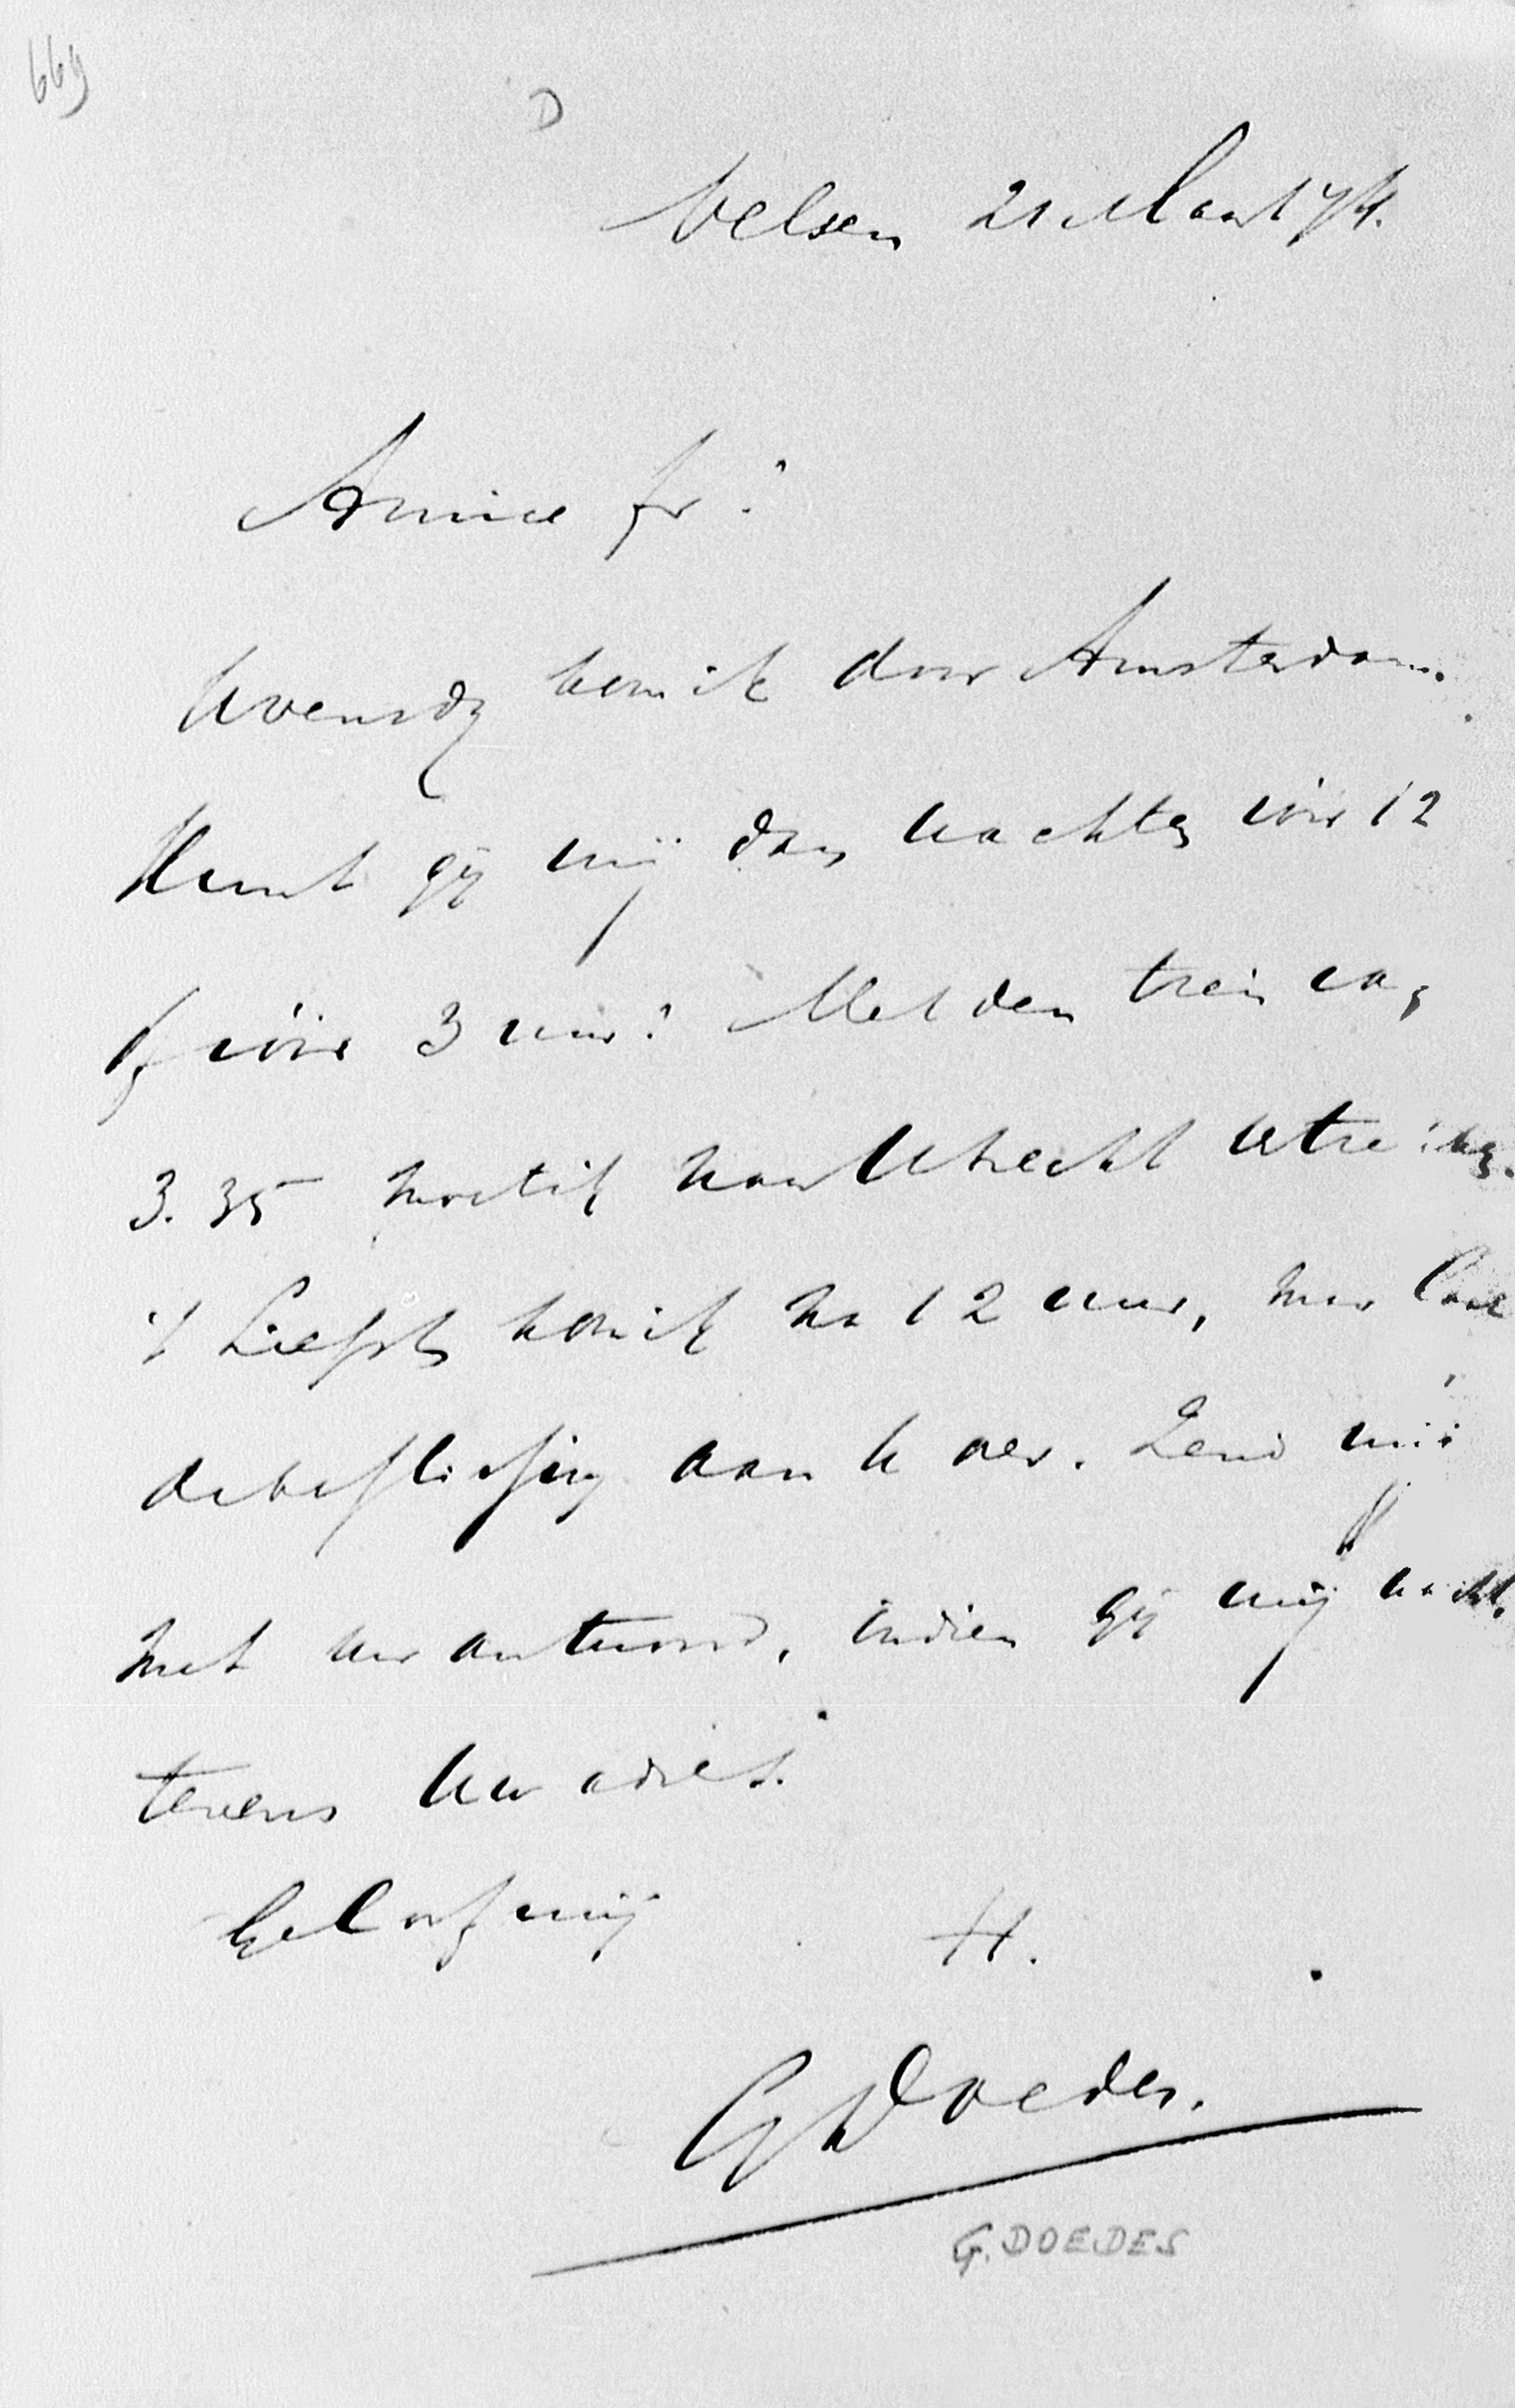 669
D
Velsen 21 Maart 74.
Amice fr!
Woensdg kom ik door Amsterdam.
Kunt gij mij dan wachten vóór 12
of vóór 3 uur? Met den trein van
3.35 moet ik naar Utrecht
't Liefst kom ik na 12 uur, maar laat
de beslissing aan U over. Zend mij
met uw antwoord, indien gij mij wacht,
tevens Uw adres.
Geloof mij
H.
G Doedes.
G. DOEDES